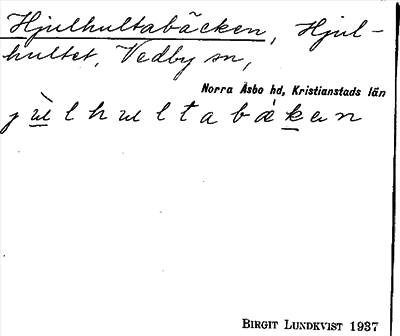 Hjulhultabäcken, Hjul-
hultet, Vedby sn,
Norra Åsbo hd, Kristianstads län
BIRGIT LUNDKVIST 1937